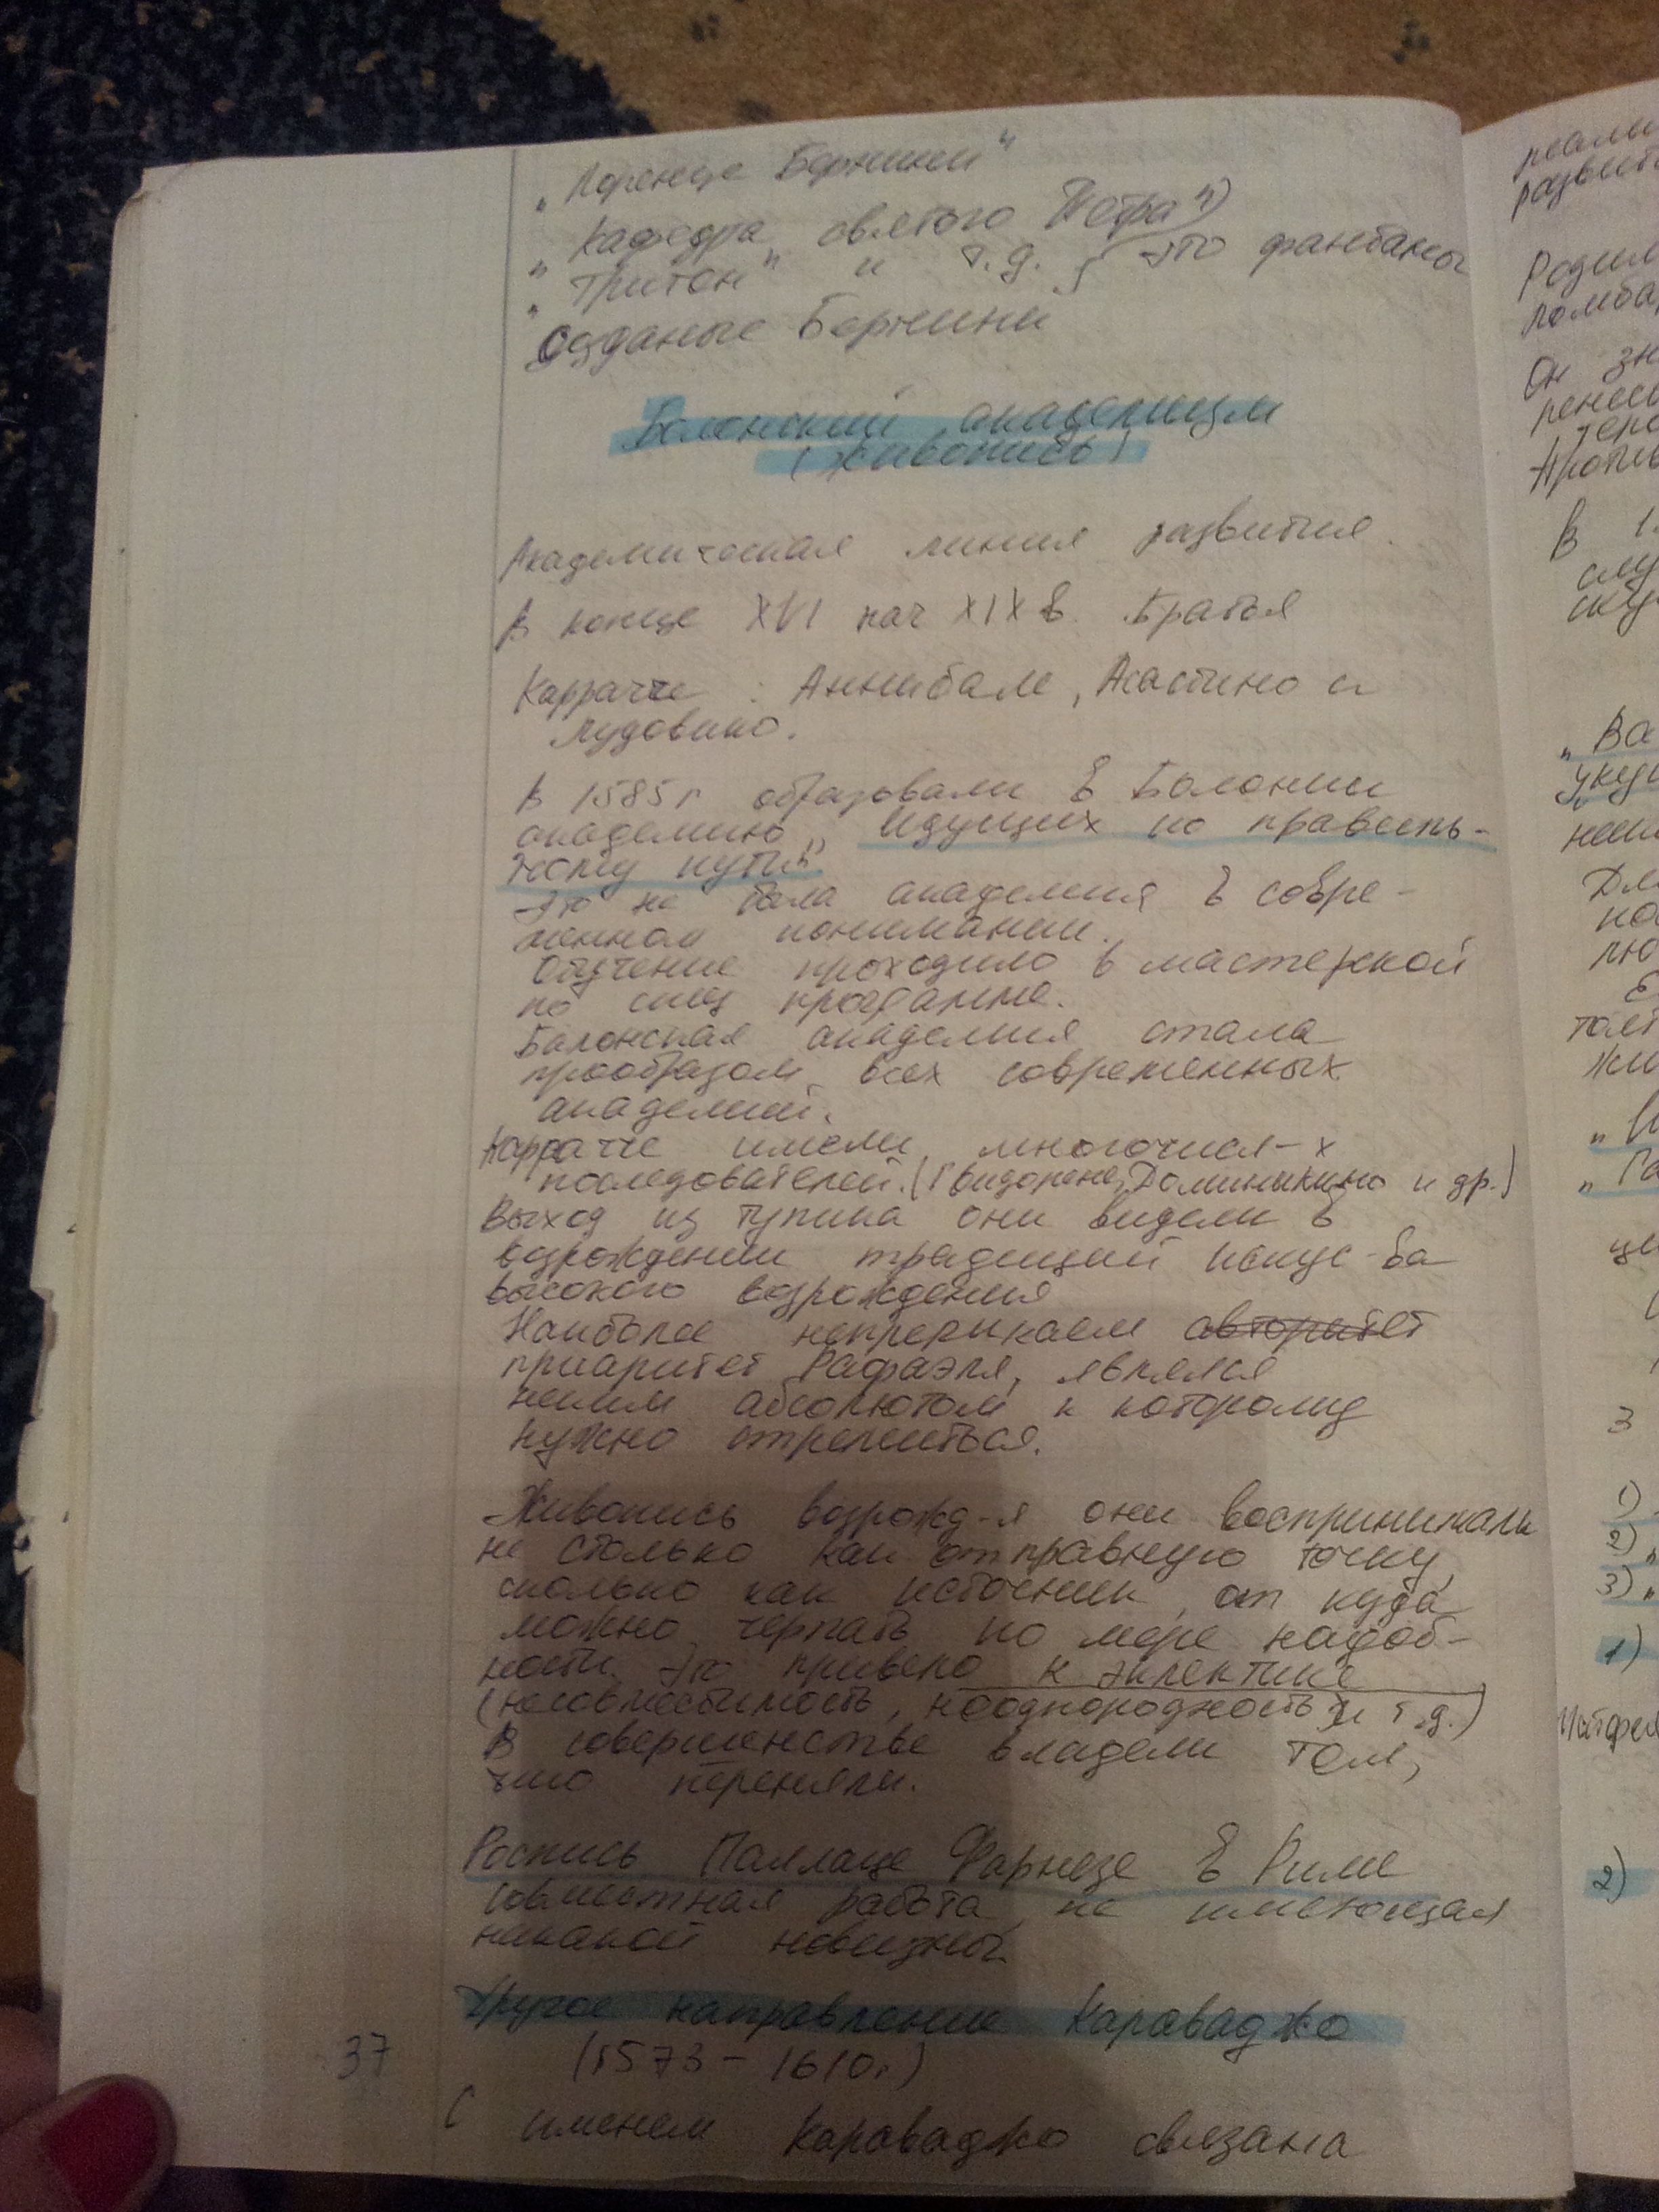 „Лоренце Бернини"
„Кафедра святого Петра")
„Тритон" и т.д. } это фантаны
созданые Бернини
Балонский академизм
(живопись)
Академическая линия развития.
В конце XVI нач XIX в. Братья
Карраччи : Аннибале, Агастино и
Лудовико.
В 1585 г образовали в Балонии
академию „идущих по правель-
ному пути"
Это не была академия в совре-
менном понимании.
Обучение проходило в мастерской
по спец программе.
Балонская академия стала
прообразом всех современных
академий.
Карраччи имели многочисл-х
последователей. (Гвидорене, Доминыкино и др.)
Выход из тупика они видели в
возрождении традиций искус-ва
высокого возрождения
Наиболее непререкаем авторитет
приаритет Рафаэля, являлся
неким абсолютом к которому
нужно стремиться.
Живопись возрожд-я они воспринимали
не столько как отправную точку,
сколько как источник, от куда
можно черпать по мере надоб-
ности. Это привело к эклектике
(несовместимость, нооднородность и т.д.)
В совершенстве владели тем,
что переняли.
Роспись Паллаце Фарнезе в Риме
совместная работа, не имеющая
никакой новизны
Другое направление Караваджо
(1573 - 1610г.)
С именем Караваджо связана
37
развит
Родил
ломба
Он зн
ренес
В 1
„Ва
Дл
по
лю
жи
„Га
3
1)
2) „
3) „
1)
2)